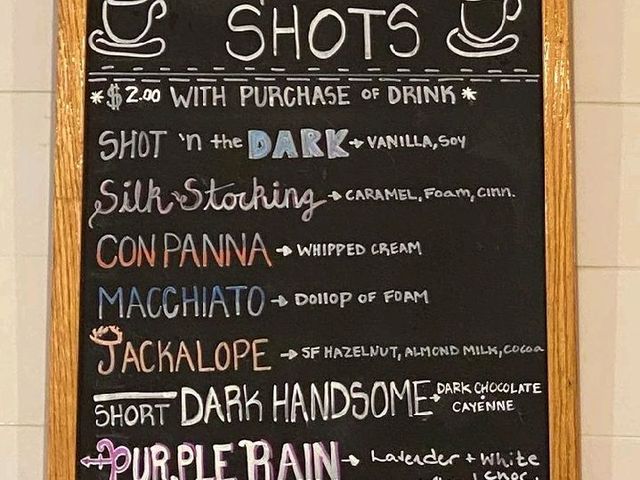 SHOTS
*$2.00 WITH PURCHASE OF DRINK*
SHOT 'n the DARK → VANILLA, SOY
Silk Stocking → CARAMEL, Foam, CINN.
CON PANNA → WHIPPED CREAM
MACCHIATO → DOllOP OF FOAM
JACKALOPE → SF HAZELNUT, ALMOND MILK, COCOA
SHORT DARK HANDSOME → DARK CHOCOLATE
CAYENNE
PURPLE RAIN → Lavender + White
choc.